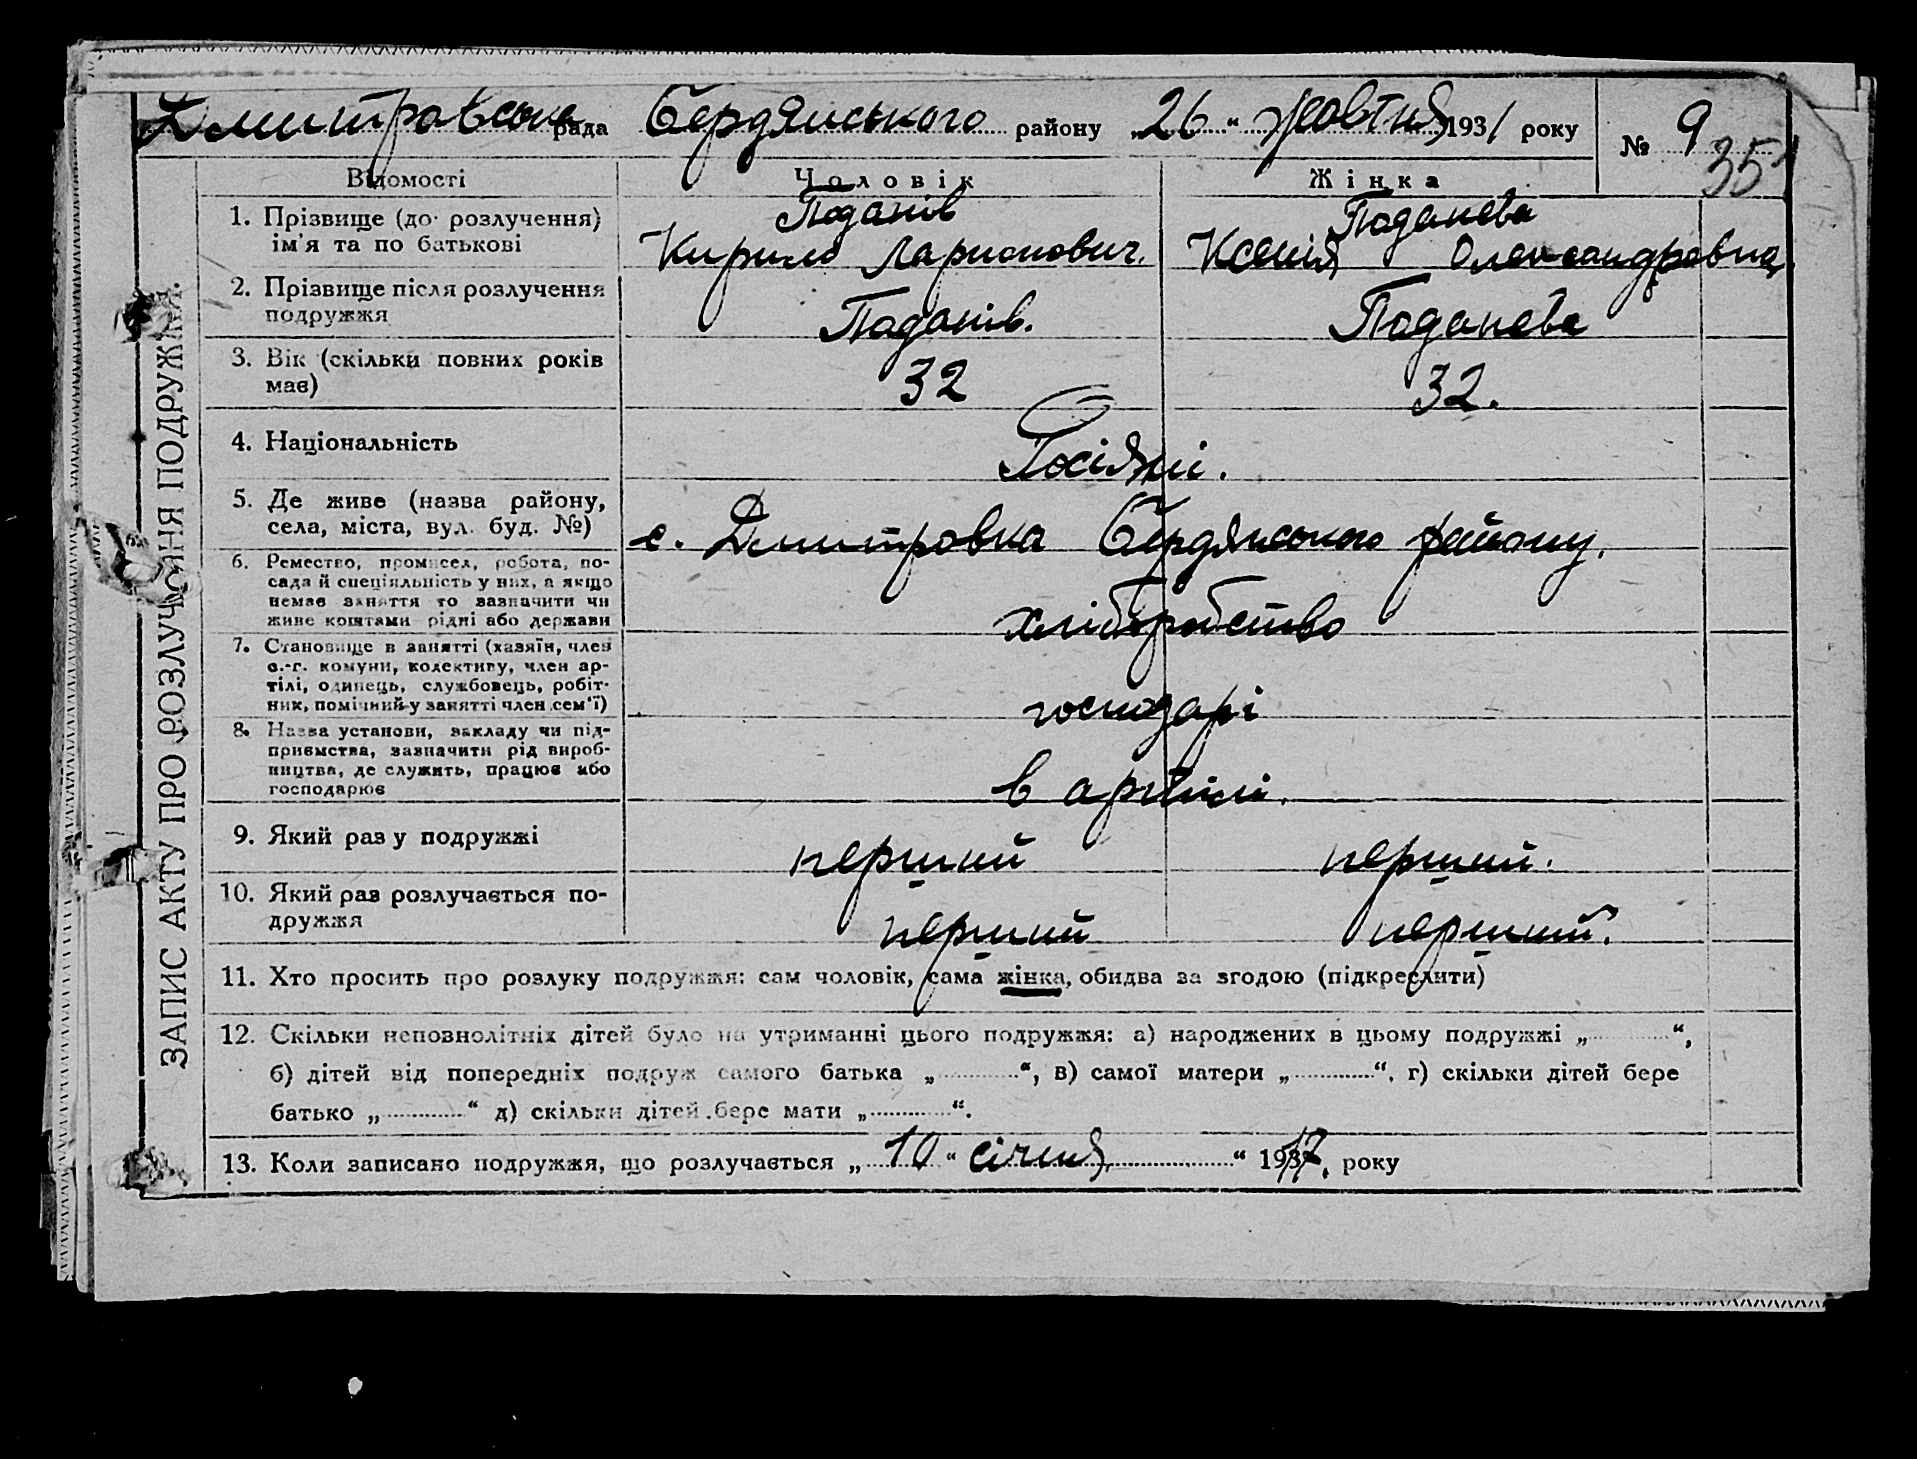 Дмитровська рада Бердянського району „26“ Жовтня 1931 року № 9
35
ЗАПИС АКТУ ПРО РОЗЛУЧЕННЯ ПОДРУЖЖЯ.
Відомості Чоловік Жінка
1. Прізвище (до розлучення) ім'я та по батькові
Поданів Кирило Ларионович.
Поданева Ксенія Олександровна
2. Прізвище після розлучення подружжя
Поданів. Поданева
3. Вік (скільки повних років має)
32 32.
4. Національність
Росіяні.
5. Де живе (назва району, села, міста, вул. буд. №)
с. Дмитровка Бердянського району.
6. Ремество, промисел, робота, по-
сада й спеціяльність у них, а якщо
немає заняття то зазначити чи
живе коштами рідні або держави
хліборобство
7. Становище в занятті (хазяїн, член
с.-г. комуни, колективу, член ар-
тілі, одинець, службовець, робіт-
ник, помічний у занятті член сем'ї)
господарі
8. Назва установи, закладу чи під-
приємства, зазначити рід вироб-
ництва, де служить, працює або
господарює
в артілі.
9. Який раз у подружжі
перший перший.
10. Який раз розлучається по-
дружжя
перший перший.
11. Хто просить про розлуку подружжя: сам чоловік, сама жінка, обидва за згодою (підкреслити)
12. Скільки неповнолітніх дітей було на утриманні цього подружжя: а) народжених в цьому подружжі „..........“,
б) дітей від попередніх подруж самого батька „..........“, в) самої матери „..........“, г) скільки дітей бере
батько „..........“ д) скільки дітей бере мати „..........“.
13. Коли записано подружжя, що розлучається „10“ січня “ 1917, року